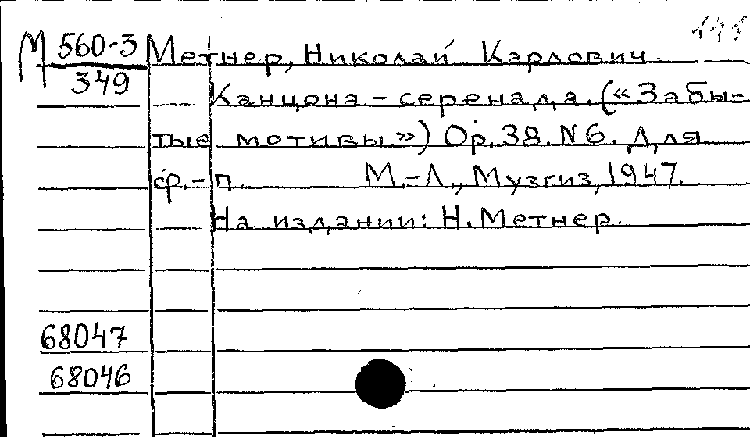 М 560-3 Метнер, Николай Карлович.
349
Канцона-серенада. («Забы-
тые мотивы») Op. 38. N 6. Для
ф.-п. М.-Л., Музгиз, 1947.
На издании: Н. Метнер.
68047
68046